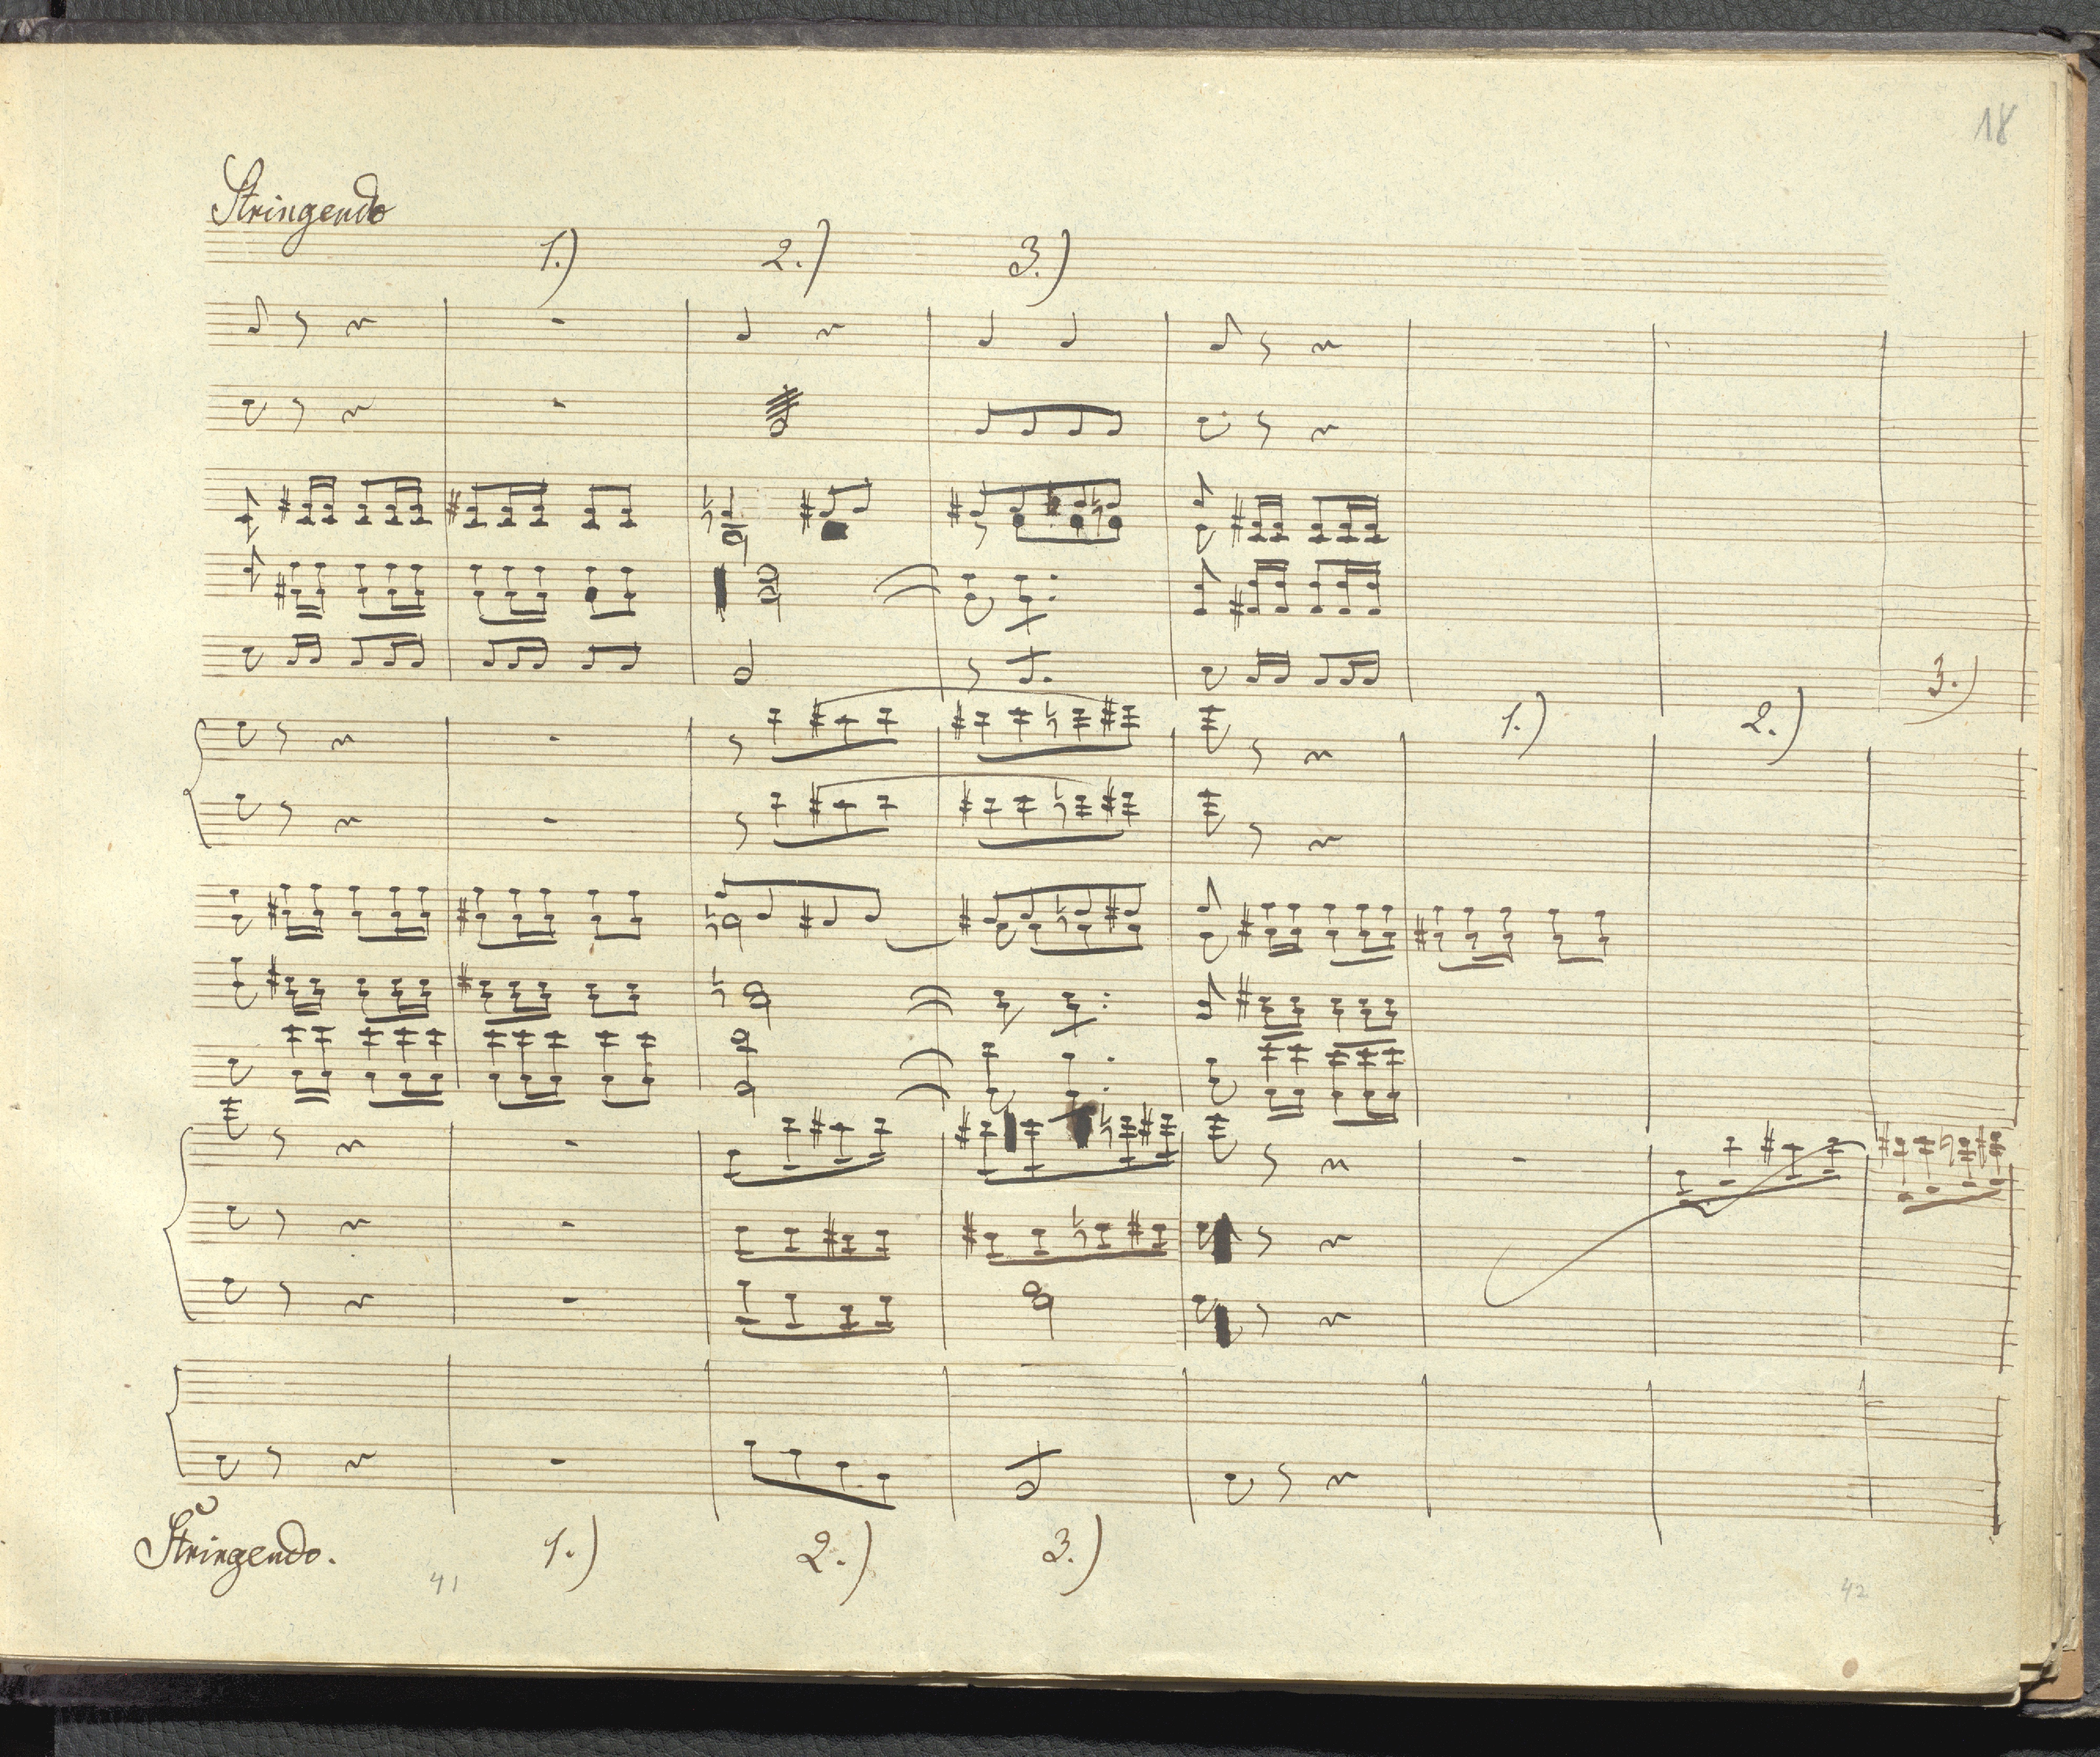 18
Stringendo
1.) 2.) 3.)
3.)
1.) 2.)
Stringendo. 1.) 2.) 3.)
41 42